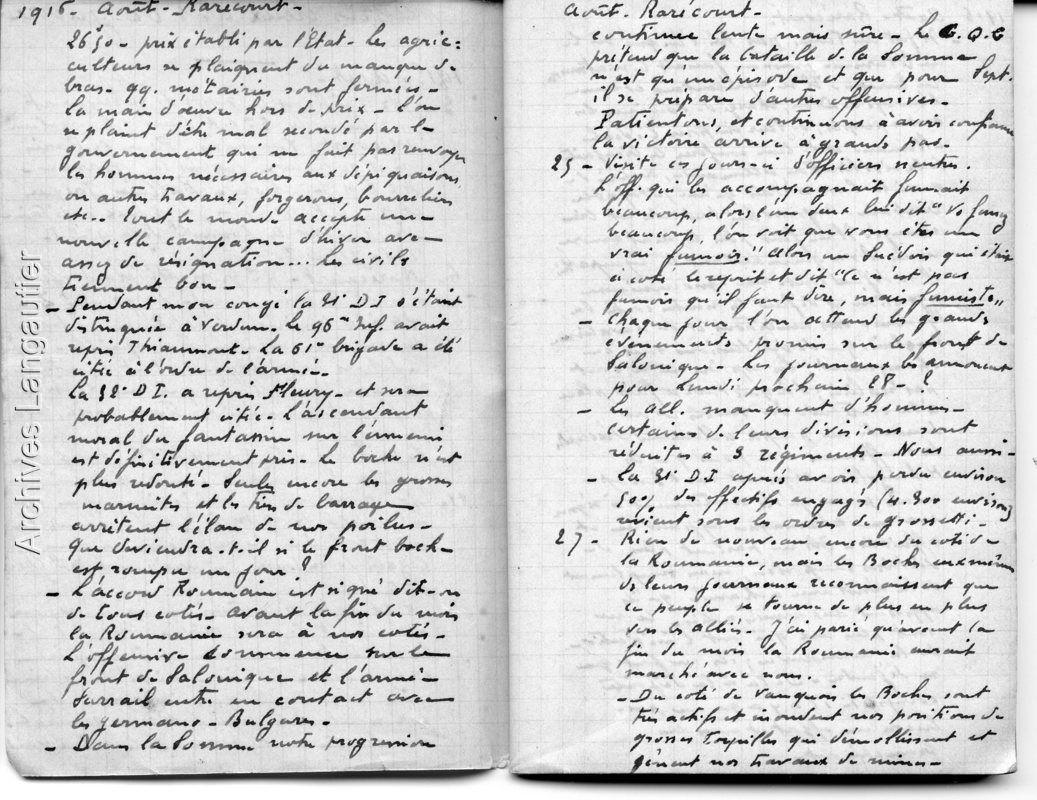 1916. Août. Rarécourt.
26f50 - prix établi par l'Etat. Les agric=
culteurs se plaignent du manque de
bras. qq. métairies sont fermées -
la main d'œuvre hors de prix - l'on
se plaint d'être mal secondé par le
gouvernement qui ne fait pas renvoyer
les hommes nécessaires aux dépiquaisons,
ou autres travaux, forgerons, bourreliers
etc.. Tout le monde accepte une
nouvelle campagne d'hiver avec
assez de résignation... Les civils
tiennent bon -
- Pendant mon congé la 31e D I s'était
distinguée à Verdun. Le 96me Inf. avait
repris Thiaumont. La 61e brigade a été
citée à l'ordre de l'armée.
La 32e D I. a repris Fleury - et sera
probablement citée. L'ascendant
moral du fantassin sur l'ennemi
est définitivement pris. Le boche n'est
plus redouté. Seules encore les grosses
marmites et les tirs de barrage
arrêtent l'élan de nos poilus -
Que deviendra-t-il si le front boche
est rompu un jour ?
- L'accord Roumain est signé dit-on
de tous cotés. avant la fin du mois
la Roumanie sera à nos cotés -
L'offensive commence sur le
front de Salonique et l'armée
Sarrail entre en contact avec
les germano-Bulgares -
- Dans la Somme notre progression
Août - Rarécourt -
continue lente mais sûre - Le G.Q.G
prétend que la bataille de la Somme
n'est qu'un épisode et que pour Sept.
il se prépare d'autres offensives -
Patientons, et continuons à avoir confiance
la victoire arrive à grands pas -
25 - Visite ces jours-ci d'officiers neutres.
L'off. qui les accompagnait fumait
beaucoup, alors l'un deux lui dit "Vs fumez
beaucoup, l'on voit que vous êtes un
vrai fumoir." Alors un Suédois qui était
à coté le reprit et dit "Ce n'est pas
fumoir qu'il faut dire, mais fumiste"
- Chaque jour l'on attend les grands
évènements promis sur le front de
Salonique - Les journaux les annoncent
pour Lundi prochain 28 - ?
- Les All. manquent d'hommes -
certaines de leurs divisions sont
réduites à 3 régiments - Nous aussi -
- La 31e D I après avoir perdu environ
50% des effectifs engagés (4.800 environ)
revient sous les ordres de Grossetti -
27 - Rien de nouveau encore du coté de
la Roumanie, mais les Boches eux mêmes
ds leurs journaux reconnaissent que
ce peuple se tourne de plus en plus
vers les alliés - J'ai parié qu'avant la
fin du mois la Roumanie aurait
marché avec nous.
- Du coté de Vauquois les Boches sont
très actifs et inondent nos positions de
grosses torpilles qui démolissent et
gênent nos travaux de mines -
Archives Langautier